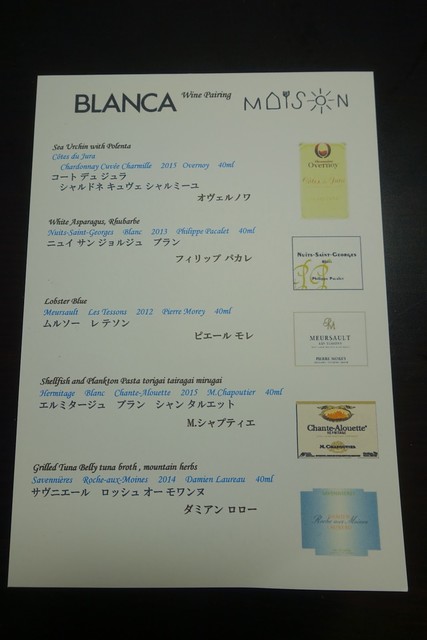 BLANCA Wine Pairing MAISON
Sea Urchin with Polenta
Côtes du Jura
Chardonnay Cuvée Charmille 2015 Overnoy 40ml
コート デュ ジュラ
シャルドネ キュヴェ シャルミーユ
オヴェルノワ
Overnoy
White Asparagus, Rhubarbe
Nuits-Saint-Georges Blanc 2013 Philippe Pacalet 40ml
ニュイ サン ジョルジュ ブラン
フィリップ パカレ
Nuits-Saint-Georges
Philippe Pacalet
Lobster Blue
Meursault Les Tessons 2012 Pierre Morey 40ml
ムルソー レ テソン
ピエール モレ
PM
MEURSAULT
LES TESSONS
PIERRE MOREY
Shellfish and Plankton Pasta torigai tairagai mirugai
Hermitage Blanc Chante-Alouette 2015 M.Chapoutier 40ml
エルミタージュ ブラン シャン タルエット
M.シャプティエ
Chante-Alouette
HERMITAGE
M. CHAPOUTIER
Grilled Tuna Belly tuna broth , mountain herbs
Savennières Roche-aux-Moines 2014 Damien Laureau 40ml
サヴニエール ロッシュ オー モワンヌ
ダミアン ロロー
Roche aux Moines